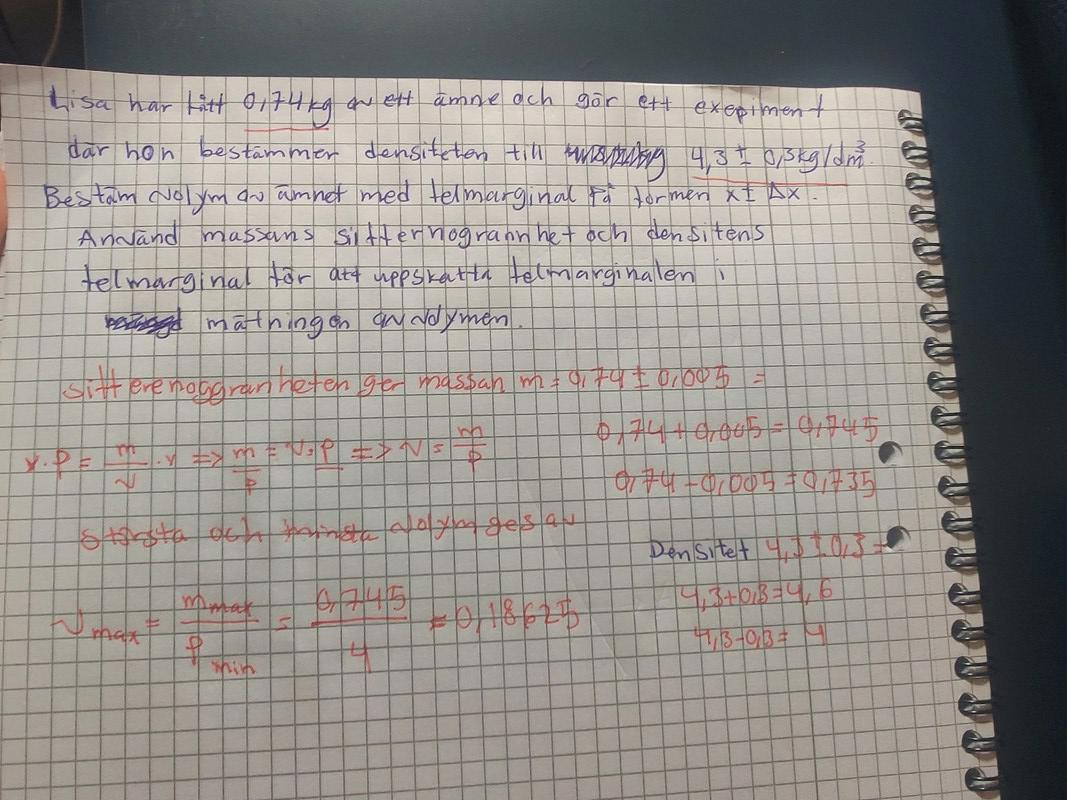 Lisa har fått 0,74 kg av ett ämne och gör ett exepiment
där hon bestämmer densiteten till 4,3 ± 0,3 kg/dm³.
Bestäm volym av ämnet med felmarginal på formen x ± Δx.
Använd massans siffernogrannhet och densitens
felmarginal för att uppskatta felmarginalen i
mätningen av volymen.
Sifferenoggranheten ger massan m = 0,74 ± 0,005 =
0,74 + 0,005 = 0,745
v · ρ = m/v · v <=> m/ρ = v·ρ/ρ <=> v = m/ρ
0,74 - 0,005 = 0,735
Största och minsta volym ges av
Densitet 4,3 ± 0,3 =
4,3 + 0,3 = 4,6
V max = m max / ρ min = 0,745 / 4 = 0,18625
4,3 - 0,3 = 4